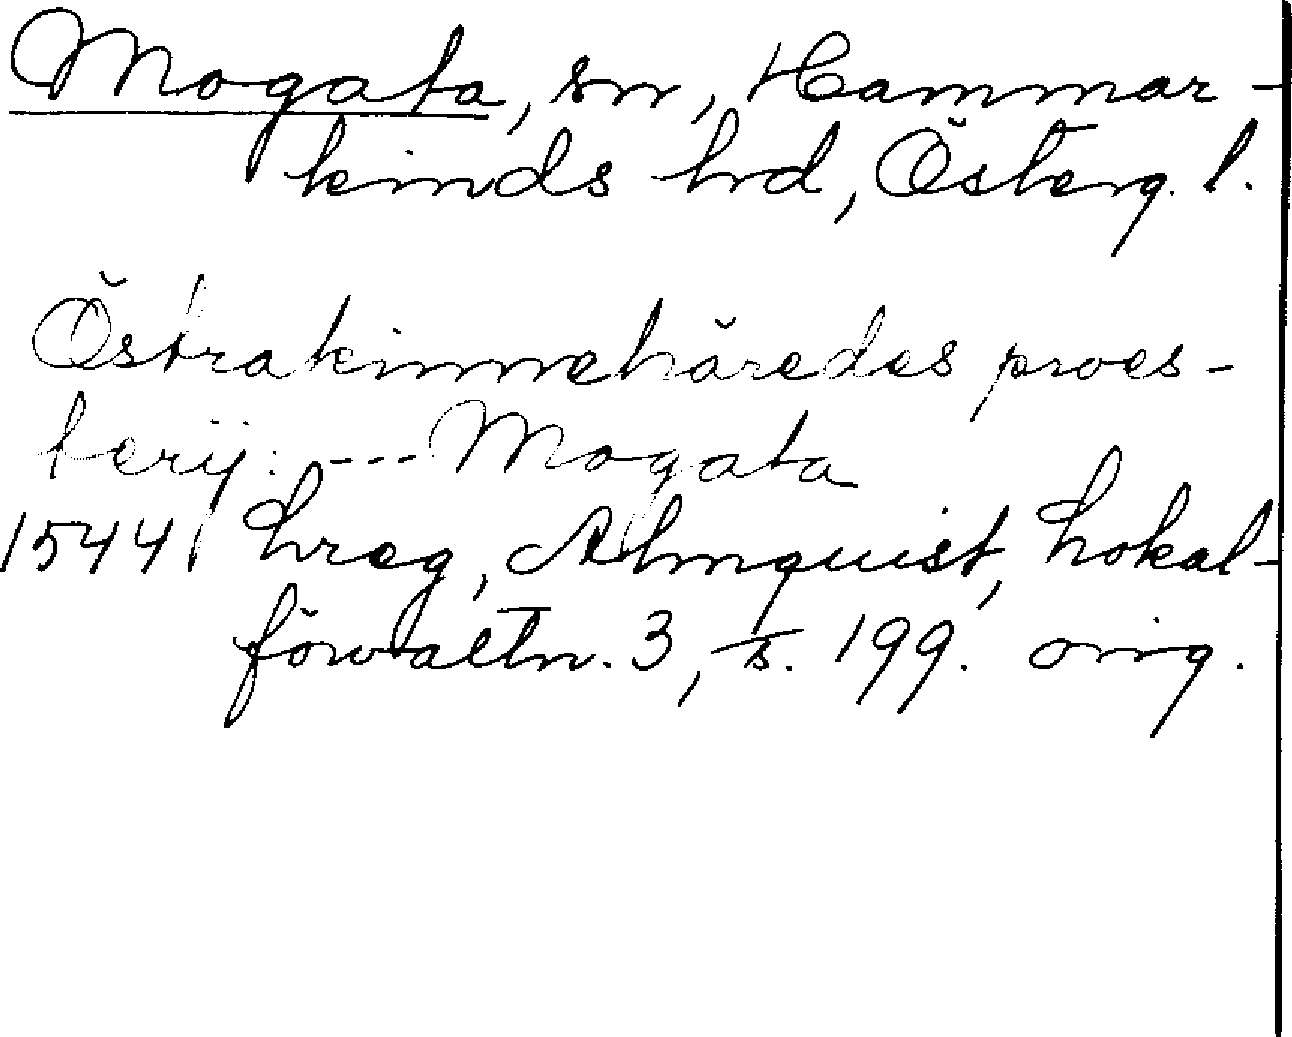 Mogata, sn, Hammar-
kinds hrd, Österg. l.
Östrakinnehäredes proes-
terij: --- Mogata
1544 Lreg, Almquist, Lokal-
förvaltn. 3, s. 199. orig.